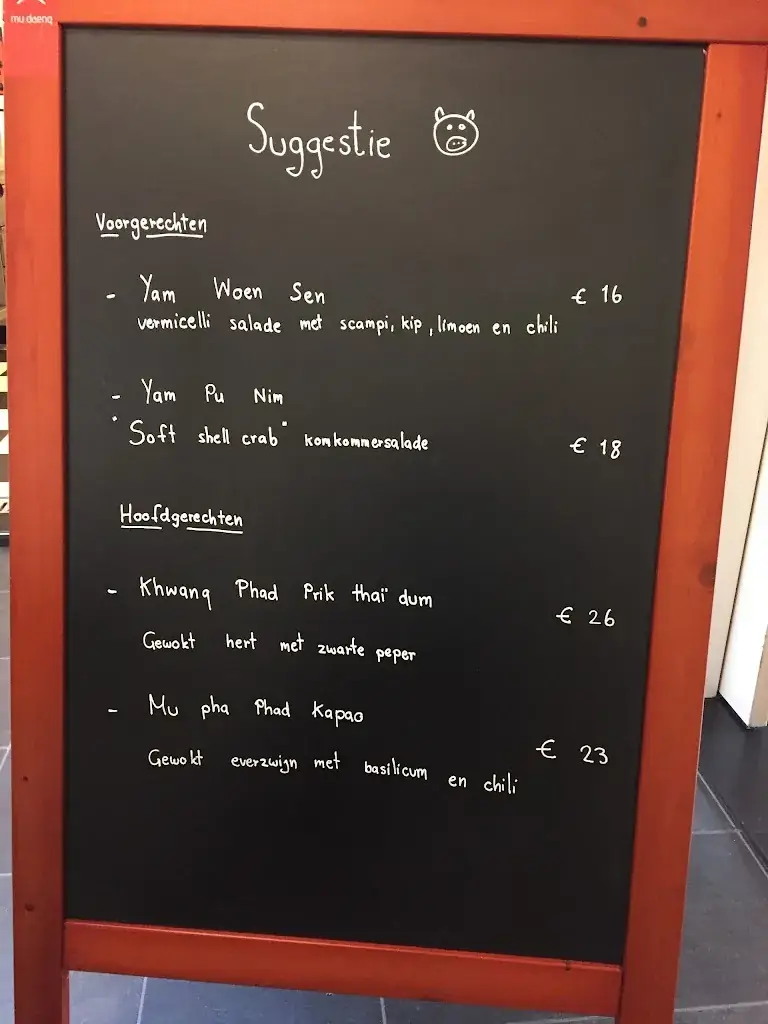 mu daeng
Suggestie
Voorgerechten
- Yam Woen Sen € 16
vermicelli salade met scampi, kip, limoen en chili
- Yam Pu Nim
"Soft shell crab" komkommersalade € 18
Hoofdgerechten
- Khwang Phad Prik thaï dum € 26
Gewokt hert met zwarte peper
- Mu pha Phad Kapao
Gewokt everzwijn met basilicum en chili € 23